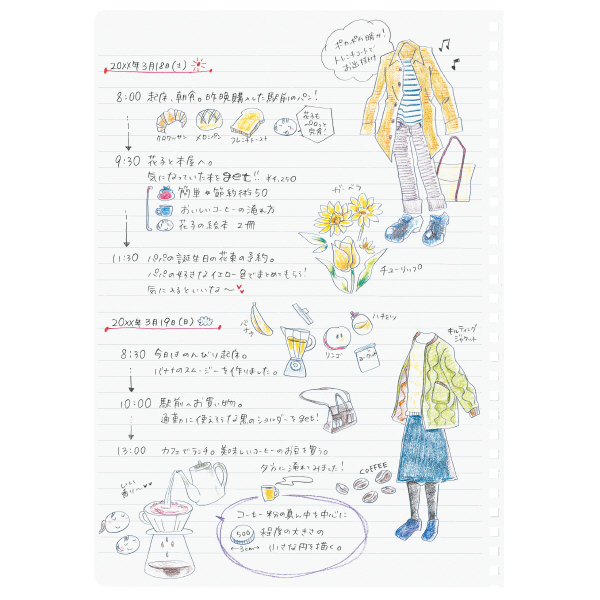 20XX年3月18日(土)
ポカポカ陽気!
トレンチコートで
お出掛け
8:00 起床、朝食。昨晩購入した駅前のパン!
クロワッサン
メロンパン
フレンチトースト
花子も
ペロッと
完食!
9:30 花子と本屋へ。
気になっていた本をget!! ¥4,250
簡単*節約術50
おいしいコーヒーの淹れ方
花子の絵本 2冊
ガーベラ
チューリップ
11:30 パパの誕生日の花束の予約。
パパの好きなイエロー色でまとめてもらう!
気に入るといいな〜
20XX年3月19日(日)
バナナ
リンゴ
ハチミツ
ヨーグルト
キルティング
ジャケット
8:30 今日はのんびり起床。
バナナのスムージーを作りました。
10:00 駅前へお買い物。
通勤に使えそうな黒のショルダーをget!
13:00 カフェでランチ。美味しいコーヒーのお豆を買う。
夕方に淹れてみました!
COFFEE
いい
香り〜
コーヒー粉の真ん中を中心に
500 程度の大きさの
3cm 小さな円を描く。